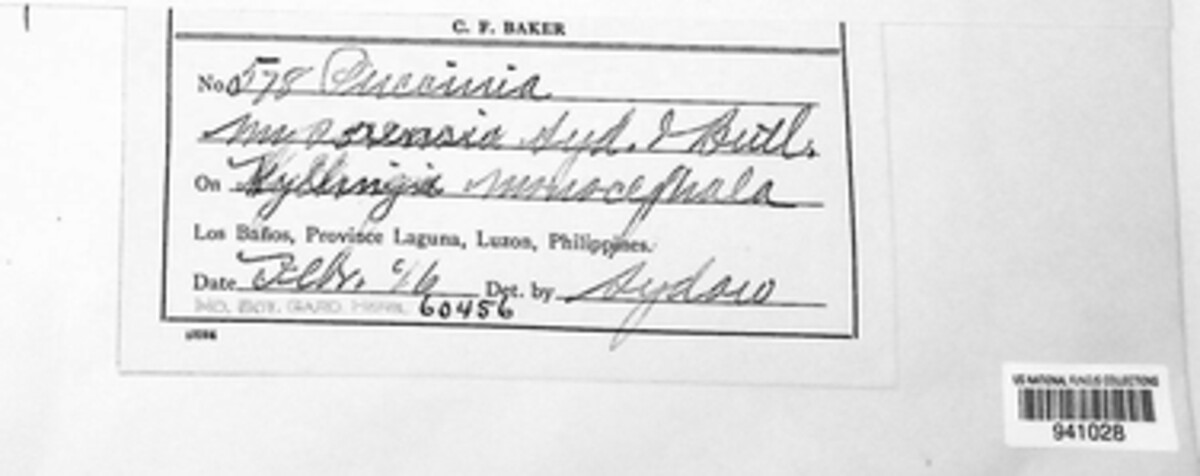 C. F. BAKER
No. 578 Puccinia
mysorensis Syd. & Butl.
On Kyllingia monocephala
Los Baños, Province Laguna, Luzon, Philippines.
Date Febr. '16 Det. by Sydow
MO. BOT. GARD. HERB. 60456
US NATIONAL FUNGUS COLLECTIONS
941028